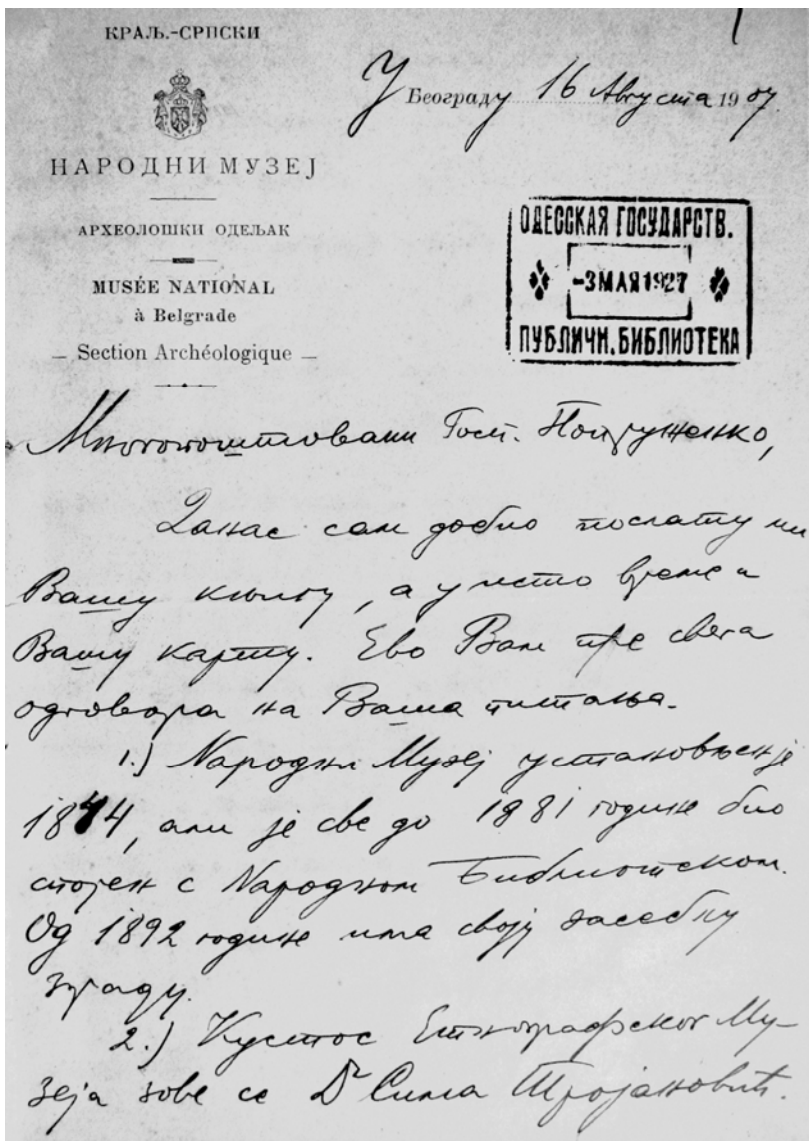 КРАЉ.-СРПСКИ
НАРОДНИ МУЗЕЈ
АРХЕОЛОШКИ ОДЕЉАК
MUSÉE NATIONAL
à Belgrade
— Section Archéologique —
У Београду 16 Августа 1907.
ОДЕССКАЯ ГОСУДАРСТВ.
-3 МАЯ 1927
ПУБЛИЧН. БИБЛИОТЕКА
Многопоштовани Госп. Попруженко,
Данас сам добио послату ми
Вашу књигу, а у исто време и
Вашу карту. Ево Вам пре свега
одговора на Ваша питања.
1.) Народни Музеј установљен је
1844, али је све до 1881 године био
спојен с Народном Библиотеком.
Од 1892 године има своју засебну
зграду.
2.) Кустос Етнографског Му-
зеја зове се Dr Сима Тројановић.